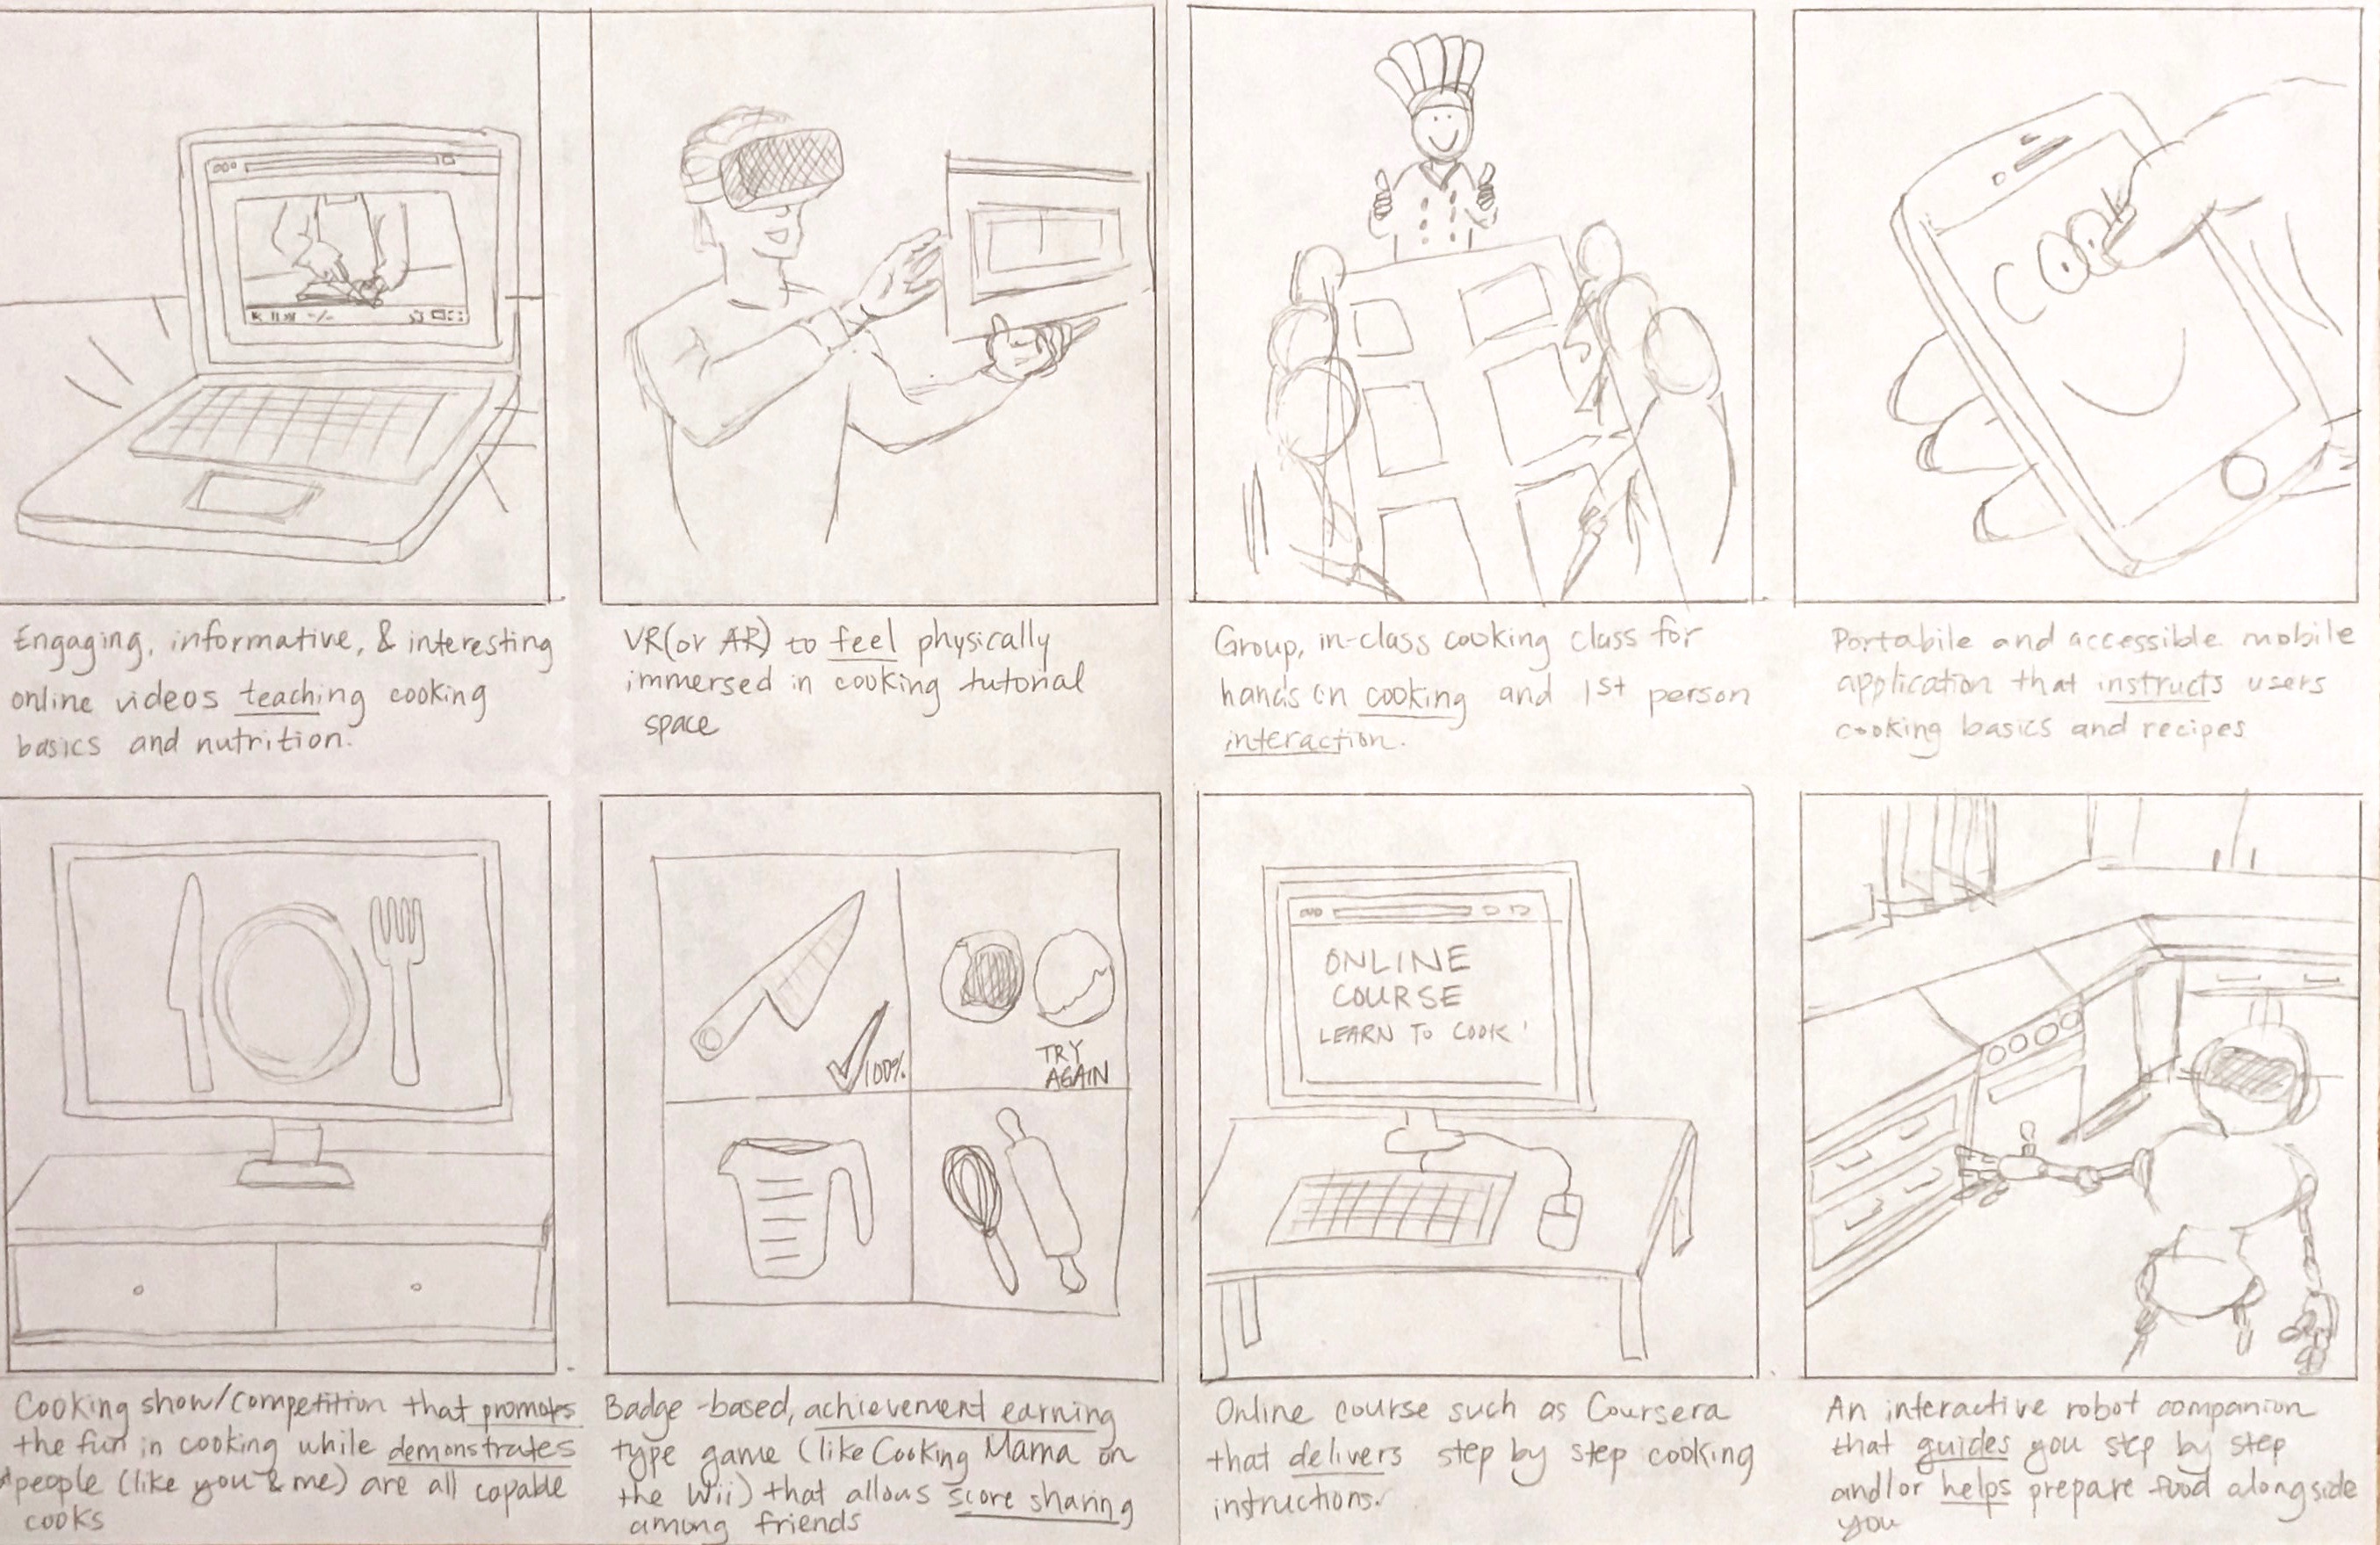 COOK
Engaging, informative, & interesting
online videos teaching cooking
basics and nutrition.
VR(or AR) to feel physically
immersed in cooking tutorial
space
Group, in-class cooking class for
hands on cooking and 1st person
interaction.
Portabile and accessible mobile
application that instructs users
cooking basics and recipes
100%
TRY
AGAIN
ONLINE
COURSE
LEARN TO COOK
Cooking show/competition that promotes
the fun in cooking while demonstrates
people (like you & me) are all capable
cooks
Badge-based, achievement earning
type game (like Cooking Mama on
the Wii) that allows score sharing
among friends
Online course such as Coursera
that delivers step by step cooking
instructions.
An interactive robot companion
that guides you step by step
and/or helps prepare food alongside
you